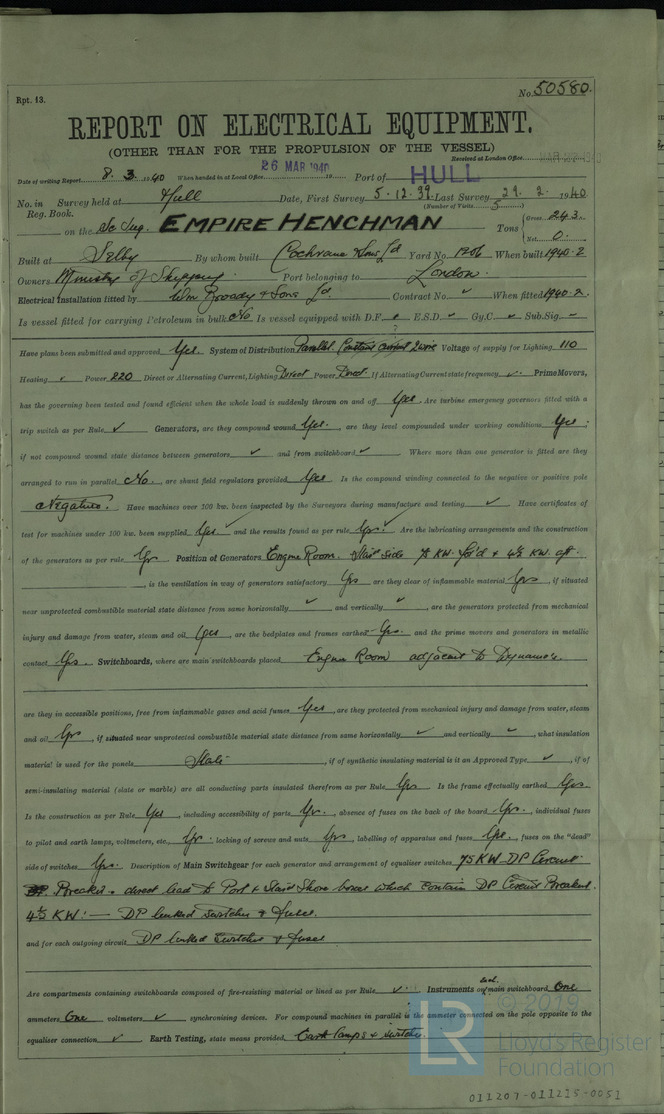 Rpt. 13.
No. 50580.
REPORT ON ELECTRICAL EQUIPMENT.
(OTHER THAN FOR THE PROPULSION OF THE VESSEL)
Received at London Office
Date of writing Report 8. 3. 1940 When handed in at Local Office 26 MAR 1940 19 Port of HULL
No. in Reg. Book. Survey held at Hull Date, First Survey 5.12.39. Last Survey 29. 2. 1940
(Number of Visits 5)
on the Sc Tug. EMPIRE HENCHMAN Tons { Gross 243. Net 0.
Built at Selby By whom built Cochrane & Sons Ld Yard No. 1206 When built 1940-2
Owners Ministry of Shipping. Port belonging to London.
Electrical Installation fitted by Wm Broady & Sons Ld. Contract No. ✓ When fitted 1940-2.
Is vessel fitted for carrying Petroleum in bulk No. Is vessel equipped with D.F. E.S.D. ✓ Gy.C ✓ Sub.Sig. –
Have plans been submitted and approved Yes. System of Distribution Parallel. Constant current 2 wire Voltage of supply for Lighting 110
Heating ✓ Power 220 Direct or Alternating Current, Lighting Direct Power Direct. If Alternating Current state frequency ✓ Prime Movers,
has the governing been tested and found efficient when the whole load is suddenly thrown on and off Yes. Are turbine emergency governors fitted with a
trip switch as per Rule ✓ Generators, are they compound wound Yes. , are they level compounded under working conditions Yes ;
if not compound wound state distance between generators ✓ and from switchboard ✓ Where more than one generator is fitted are they
arranged to run in parallel No. , are shunt field regulators provided Yes Is the compound winding connected to the negative or positive pole
Negative. Have machines over 100 kw. been inspected by the Surveyors during manufacture and testing ✓ Have certificates of
test for machines under 100 kw. been supplied Yes ✓ and the results found as per rule Yes. ✓ Are the lubricating arrangements and the construction
of the generators as per rule Yes Position of Generators Engine Room. Sta'd side 75 KW. for'd & 4½ KW. aft.
, is the ventilation in way of generators satisfactory Yes are they clear of inflammable material Yes , if situated
near unprotected combustible material state distance from same horizontally ✓ and vertically ✓ , are the generators protected from mechanical
injury and damage from water, steam and oil Yes , are the bedplates and frames earthed Yes. and the prime movers and generators in metallic
contact Yes. Switchboards, where are main switchboards placed Engine Room adjacent to Dynamos.
are they in accessible positions, free from inflammable gases and acid fumes Yes , are they protected from mechanical injury and damage from water, steam
and oil Yes , if situated near unprotected combustible material state distance from same horizontally ✓ and vertically ✓ , what insulation
material is used for the panels Slate , if of synthetic insulating material is it an Approved Type ✓ , if of
semi-insulating material (slate or marble) are all conducting parts insulated therefrom as per Rule Yes. Is the frame effectually earthed Yes.
Is the construction as per Rule Yes , including accessibility of parts Yes. , absence of fuses on the back of the board Yes. , individual fuses
to pilot and earth lamps, voltmeters, etc. Yes. locking of screws and nuts Yes , labelling of apparatus and fuses Yes. , fuses on the "dead"
side of switches Yes. Description of Main Switchgear for each generator and arrangement of equaliser switches 75 KW DP Circuit
Breaker & direct lead to Port & Sta'd Shore boxes which contain DP Circuit Breakers.
4½ KW. :— DP linked switches & fuses.
and for each outgoing circuit DP linked switches & fuses
Are compartments containing switchboards composed of fire-resisting material or lined as per Rule ✓ . Instruments on each main switchboard One
ammeters One voltmeters ✓ synchronising devices. For compound machines in parallel is the ammeter connected on the pole opposite to the
equaliser connection ✓ Earth Testing, state means provided Earth lamps & switches.
LR © 2019
Lloyd's Register
Foundation
011207-011215-0051